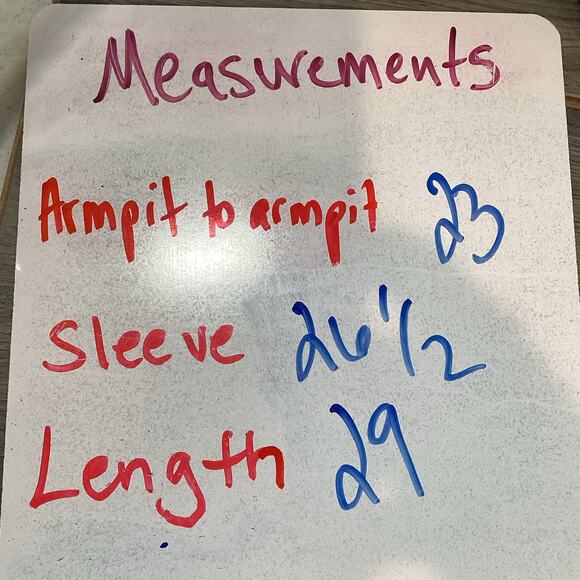 Measurements
Armpit to armpit 23
Sleeve 26 1/2
Length 29